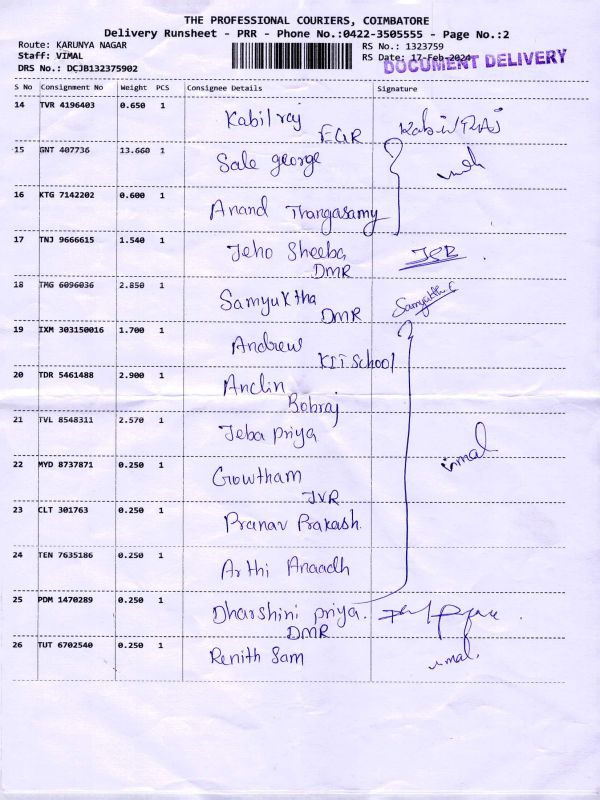 THE PROFESSIONAL COURIERS, COIMBATORE
Delivery Runsheet - PRR - Phone No.:0422-3505555 - Page No.:2
Route: KARUNYA NAGAR
RS No.: 1323759
Staff: VIMAL
RS Date: 17-Feb-2024
DRS No.: DCJB132375902
DOCUMENT DELIVERY
S No Consignment No Weight PCS Consignee Details Signature
14 TVR 4196403 0.650 1 Kabilraj KabilRaj
EGR
15 GNT 407736 13.660 1 Sale george
16 KTG 7142202 0.600 1 Anand Thangasamy
17 TNJ 9666615 1.540 1 Jeho Sheeba
DMR
18 TMG 6096036 2.850 1 Samyuktha
DMR
19 IXM 303150016 1.700 1 Andrew
KIT School
20 TDR 5461488 2.900 1 Anclin
Bobraj
21 TVL 8548311 2.570 1 Jeba Priya
22 MYD 8737871 0.250 1 Growtham
JVR
23 CLT 301763 0.250 1 Pranav Prakash.
24 TEN 7635186 0.250 1 Arthi Anaadh
25 PDM 1470289 0.250 1 Dharshini priya.
DMR
26 TUT 6702540 0.250 1 Renith Sam